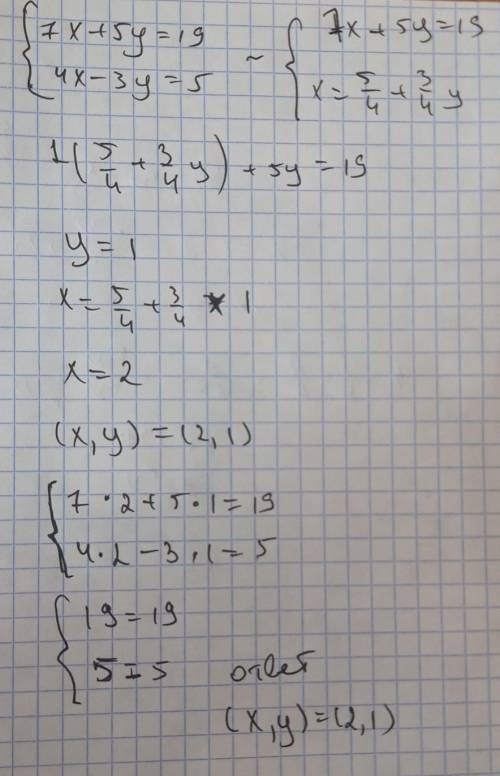 { 7x+5y=19 ~ { 7x+5y=19
{ 4x-3y=5 { x=5/4+3/4y
1(5/4+3/4y)+5y=19
y=1
x=5/4+3/4*1
x=2
(x,y)=(2,1)
{ 7·2+5·1=19
{ 4·2-3·1=5
{ 19=19
{ 5=5 ответ
(x,y)=(2,1)